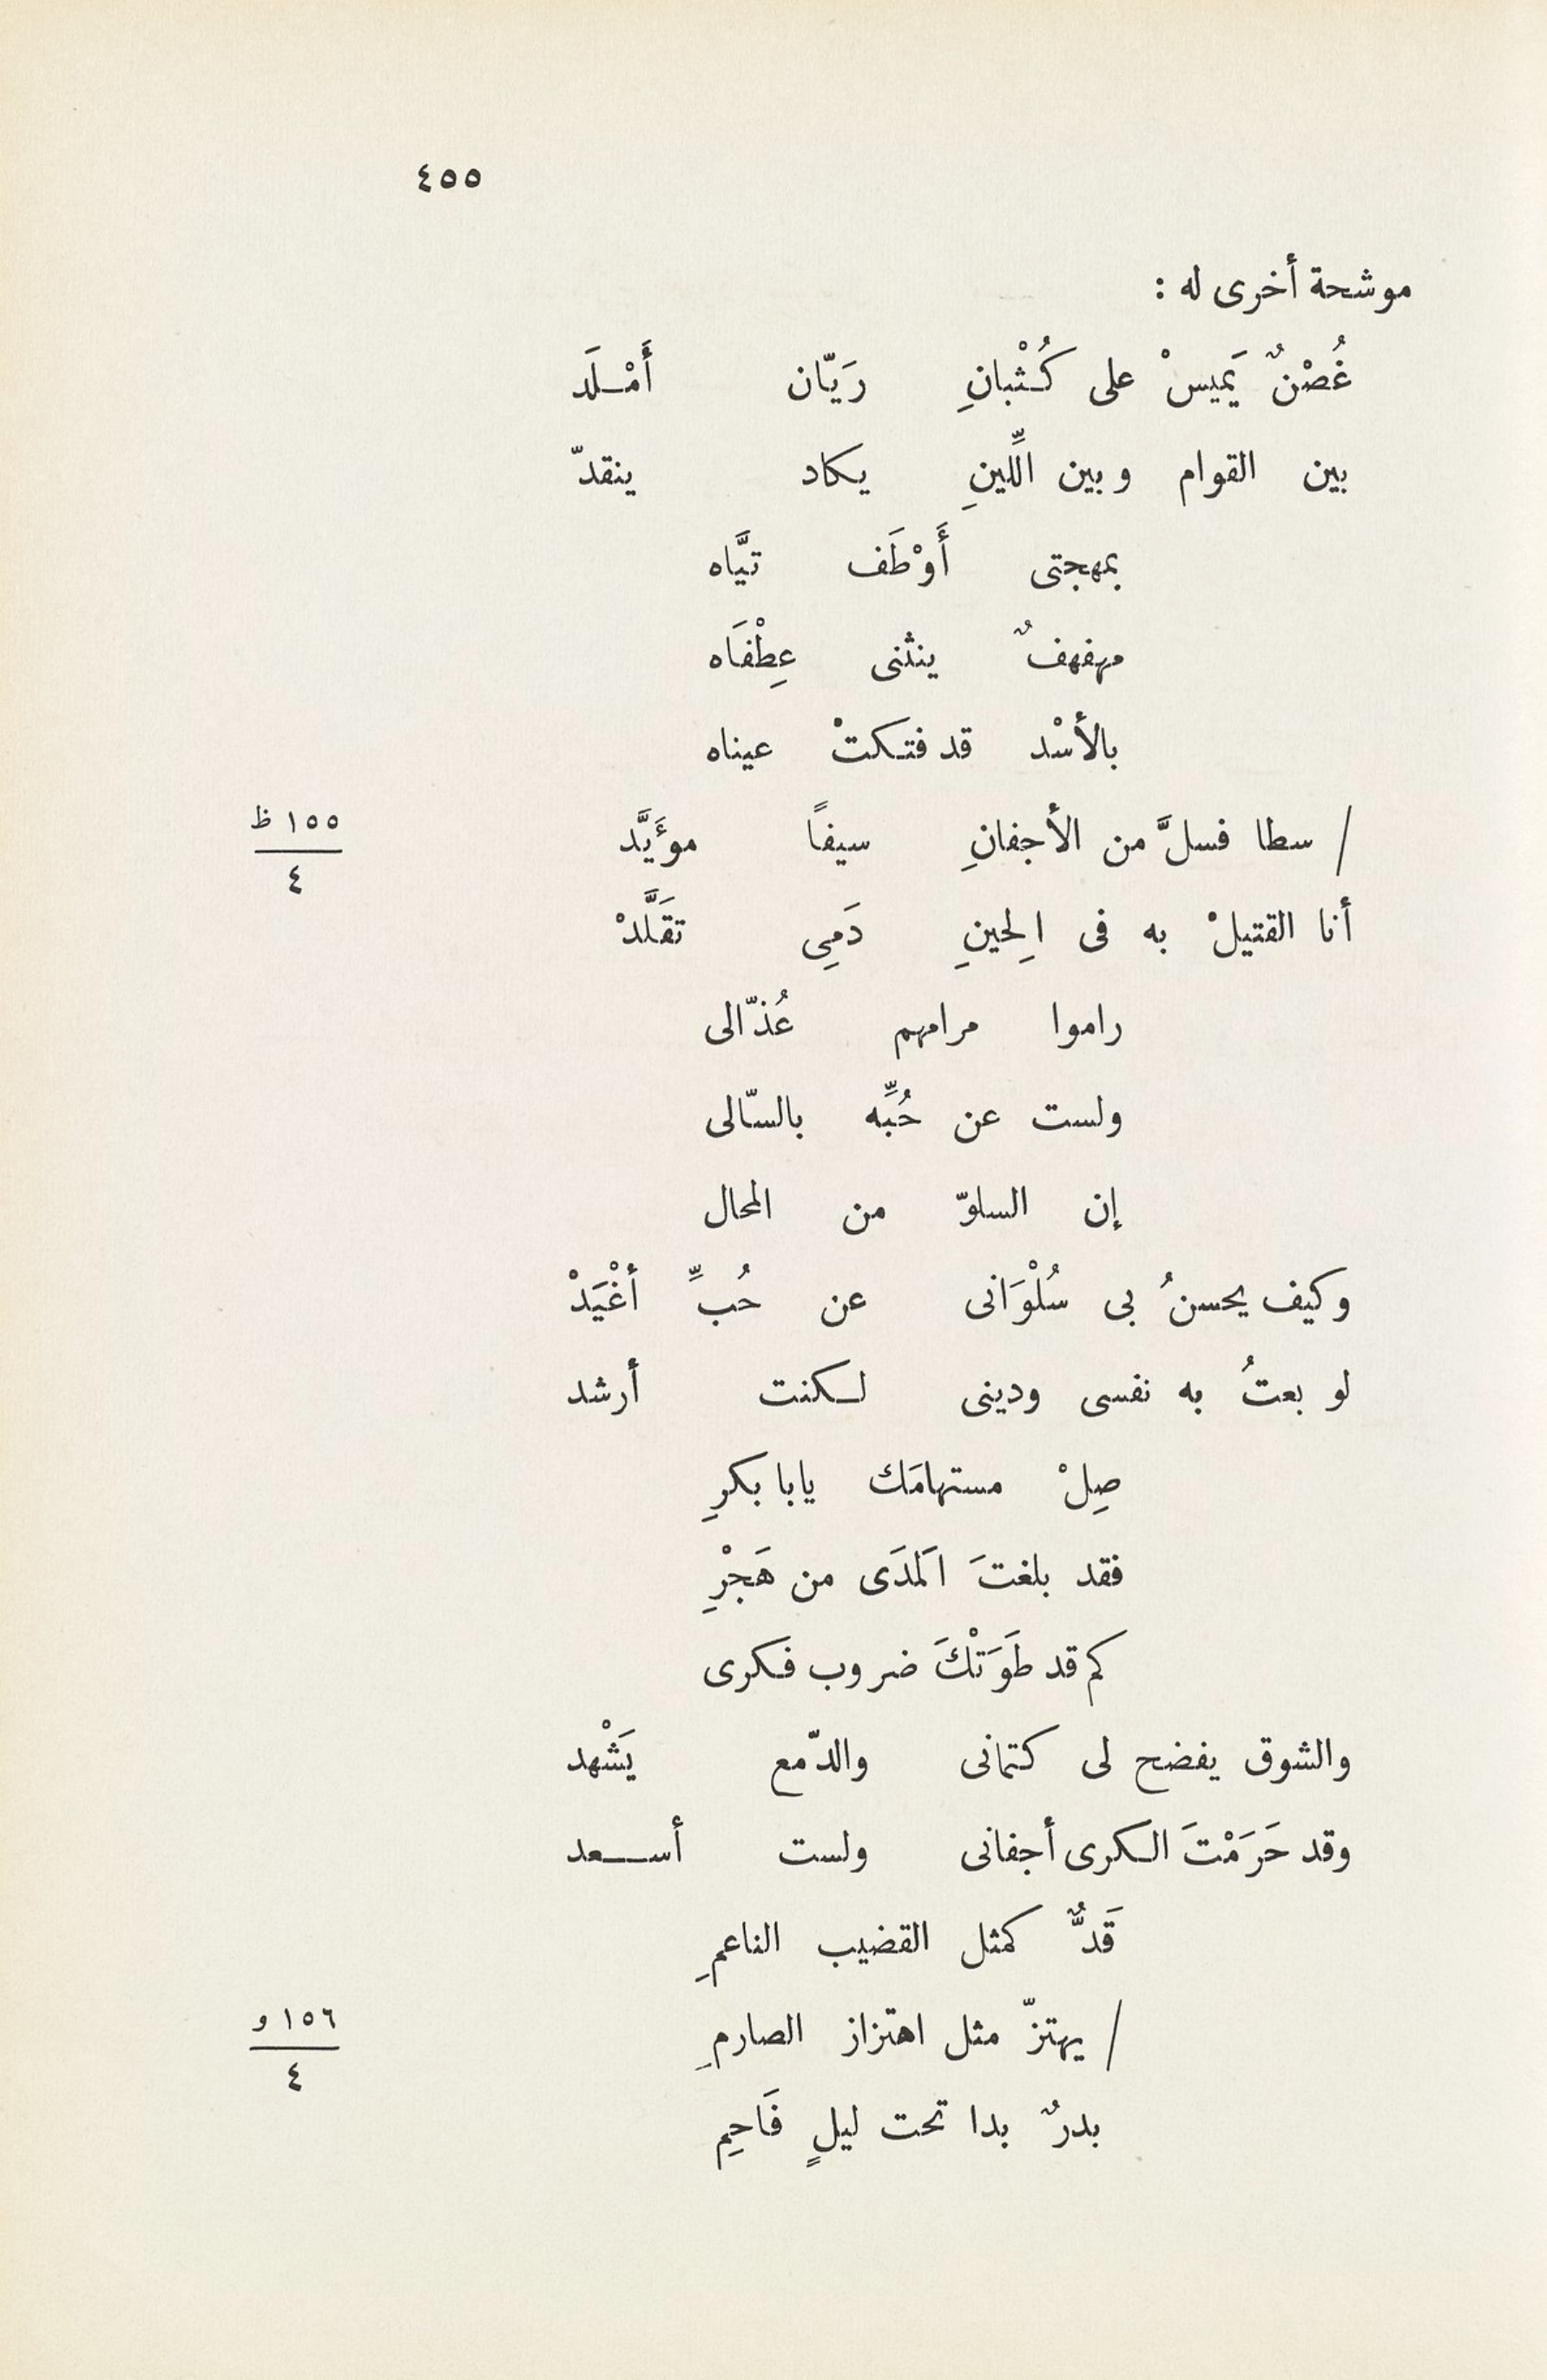 ٤٥٥
موشحة أخرى له :
غُصْنٌ يَميسْ على كُثْبانِ رَيّان أَمْلَد
بين القوام وبين اللِّينِ يكاد ينقدّ
بمهجتى أَوْطَف تيَّاه
مهفهفٌ ينثنى عِطْفَاه
بالأسْد قد فتكتْ عيناه
/ سطا فسلَّ من الأجفانِ سيفًا مؤَيَّد
١٥٥ ظ
٤
أنا القتيلْ به فى الِحينِ دَمِى تقَلَّدْ
راموا مرامهم عُذّالى
ولست عن حُبِّه بالسّالى
إن السلوّ من المحال
وكيف يحسنُ بى سُلْوَانى عن حُبِّ أغْيَدْ
لو بعتُ به نفسى ودينى لكنت أرشد
صِلْ مستهامَك يابا بكرِ
فقد بلغتَ اَلمدَى من هَجْرِ
كم قد طَوَتْكَ ضروب فكرى
والشوق يفضح لى كتمانى والدّمع يَشْهد
وقد حَرَمْتَ الكرى أجفانى ولست أسعد
قَدٌّ كمثل القضيب الناعمِ
/ يهتزّ مثل اهتزاز الصارمِ
١٥٦ و
٤
بدرٌ بدا تحت ليلٍ فَاحِم